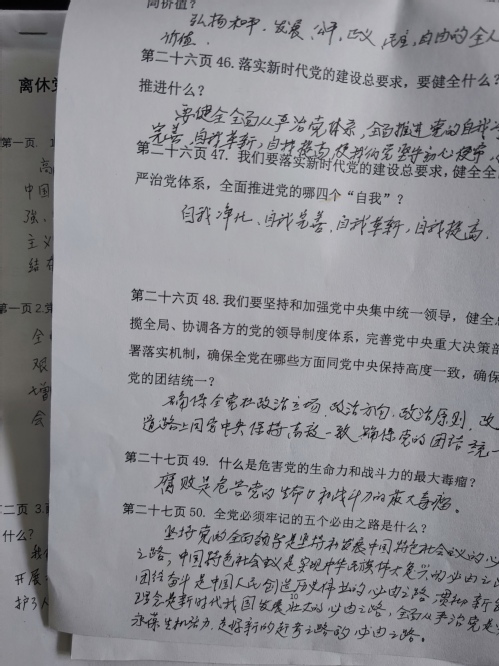 高价值？
弘扬和平、发展、公平、正义、民主、自由的全人
价值.
第二十六页 46. 落实新时代党的建设总要求，要健全什么？
推进什么？
要健全全面从严治党体系，全面推进党的自我
完善，自我革新，自我提高使我们党坚守初心使命，
第二十六页 47. 我们要落实新时代党的建设总要求，健全全
严治党体系，全面推进党的哪四个“自我”？
自我净化、自我完善、自我革新，自我提高.
第二十六页 48. 我们要坚持和加强党中央集中统一领导，健全总
揽全局、协调各方的党的领导制度体系，完善党中央重大决策部
署落实机制，确保全党在哪些方面同党中央保持高度一致，确保
党的团结统一？
确保全党在政治立场，政治方向，政治原则，政
道路上同党中央保持高度一致，确保党的团结统一
第二十七页 49. 什么是危害党的生命力和战斗力的最大毒瘤？
腐败是危害党的生命力和战斗力的最大毒瘤。
第二十七页 50. 全党必须牢记的五个必由之路是什么？
坚持党的全面领导是坚持和发展中国特色社会主义的必
之路，中国特色社会主义是实现中华民族伟大复兴的必由之路
团结奋斗是中国人民创造历史伟业的必由之路，贯彻新
理念是新时代我国发展壮大的必由之路，全面从严治党是
永葆生机活力、走好新的赶考之路的必由之路。
10
离休党
第一页. 1
高
中国
强、
主义
结
第一页 2.
全
艰
增
会
二页 3.
什么？
我
开展
护人